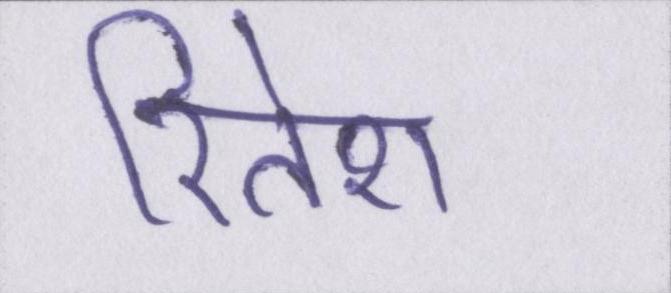 रितेश